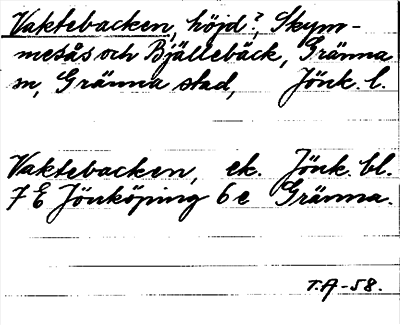 Vaktebacken, höjd?, Skym-
mesås och Bjällebäck, Gränna
sn, Gränna stad, Jönk. l.
Vaktebacken, ek. Jönk. bl.
7 E Jönköping 6 e Gränna.
T.A-58.